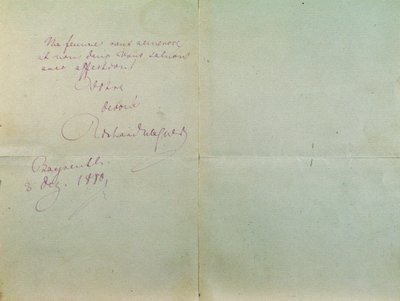 Ma femme vous remercie
et nous deux vous saluons
avec affection!
Votre
dévoué
Richard Wagner
Bayreuth.
3 1880,